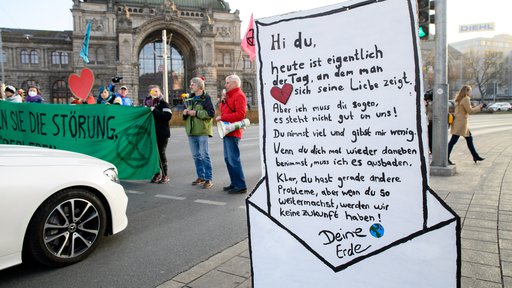 DIEHL
EN SIE DIE STÖRUNG,
Hi du,
heute ist eigentlich
der Tag, an dem man
sich seine Liebe zeigt.
Aber ich muss dir sagen,
es steht nicht gut on uns!
Du nimmst viel und gibst mir wenig.
Wenn du dich mal wieder daneben
benimmst, muss ich es ausbaden.
Klar, du hast gerade andere
Probleme, aber wenn du so
weitermachst, werden wir
keine Zukunft haben!
Deine
Erde